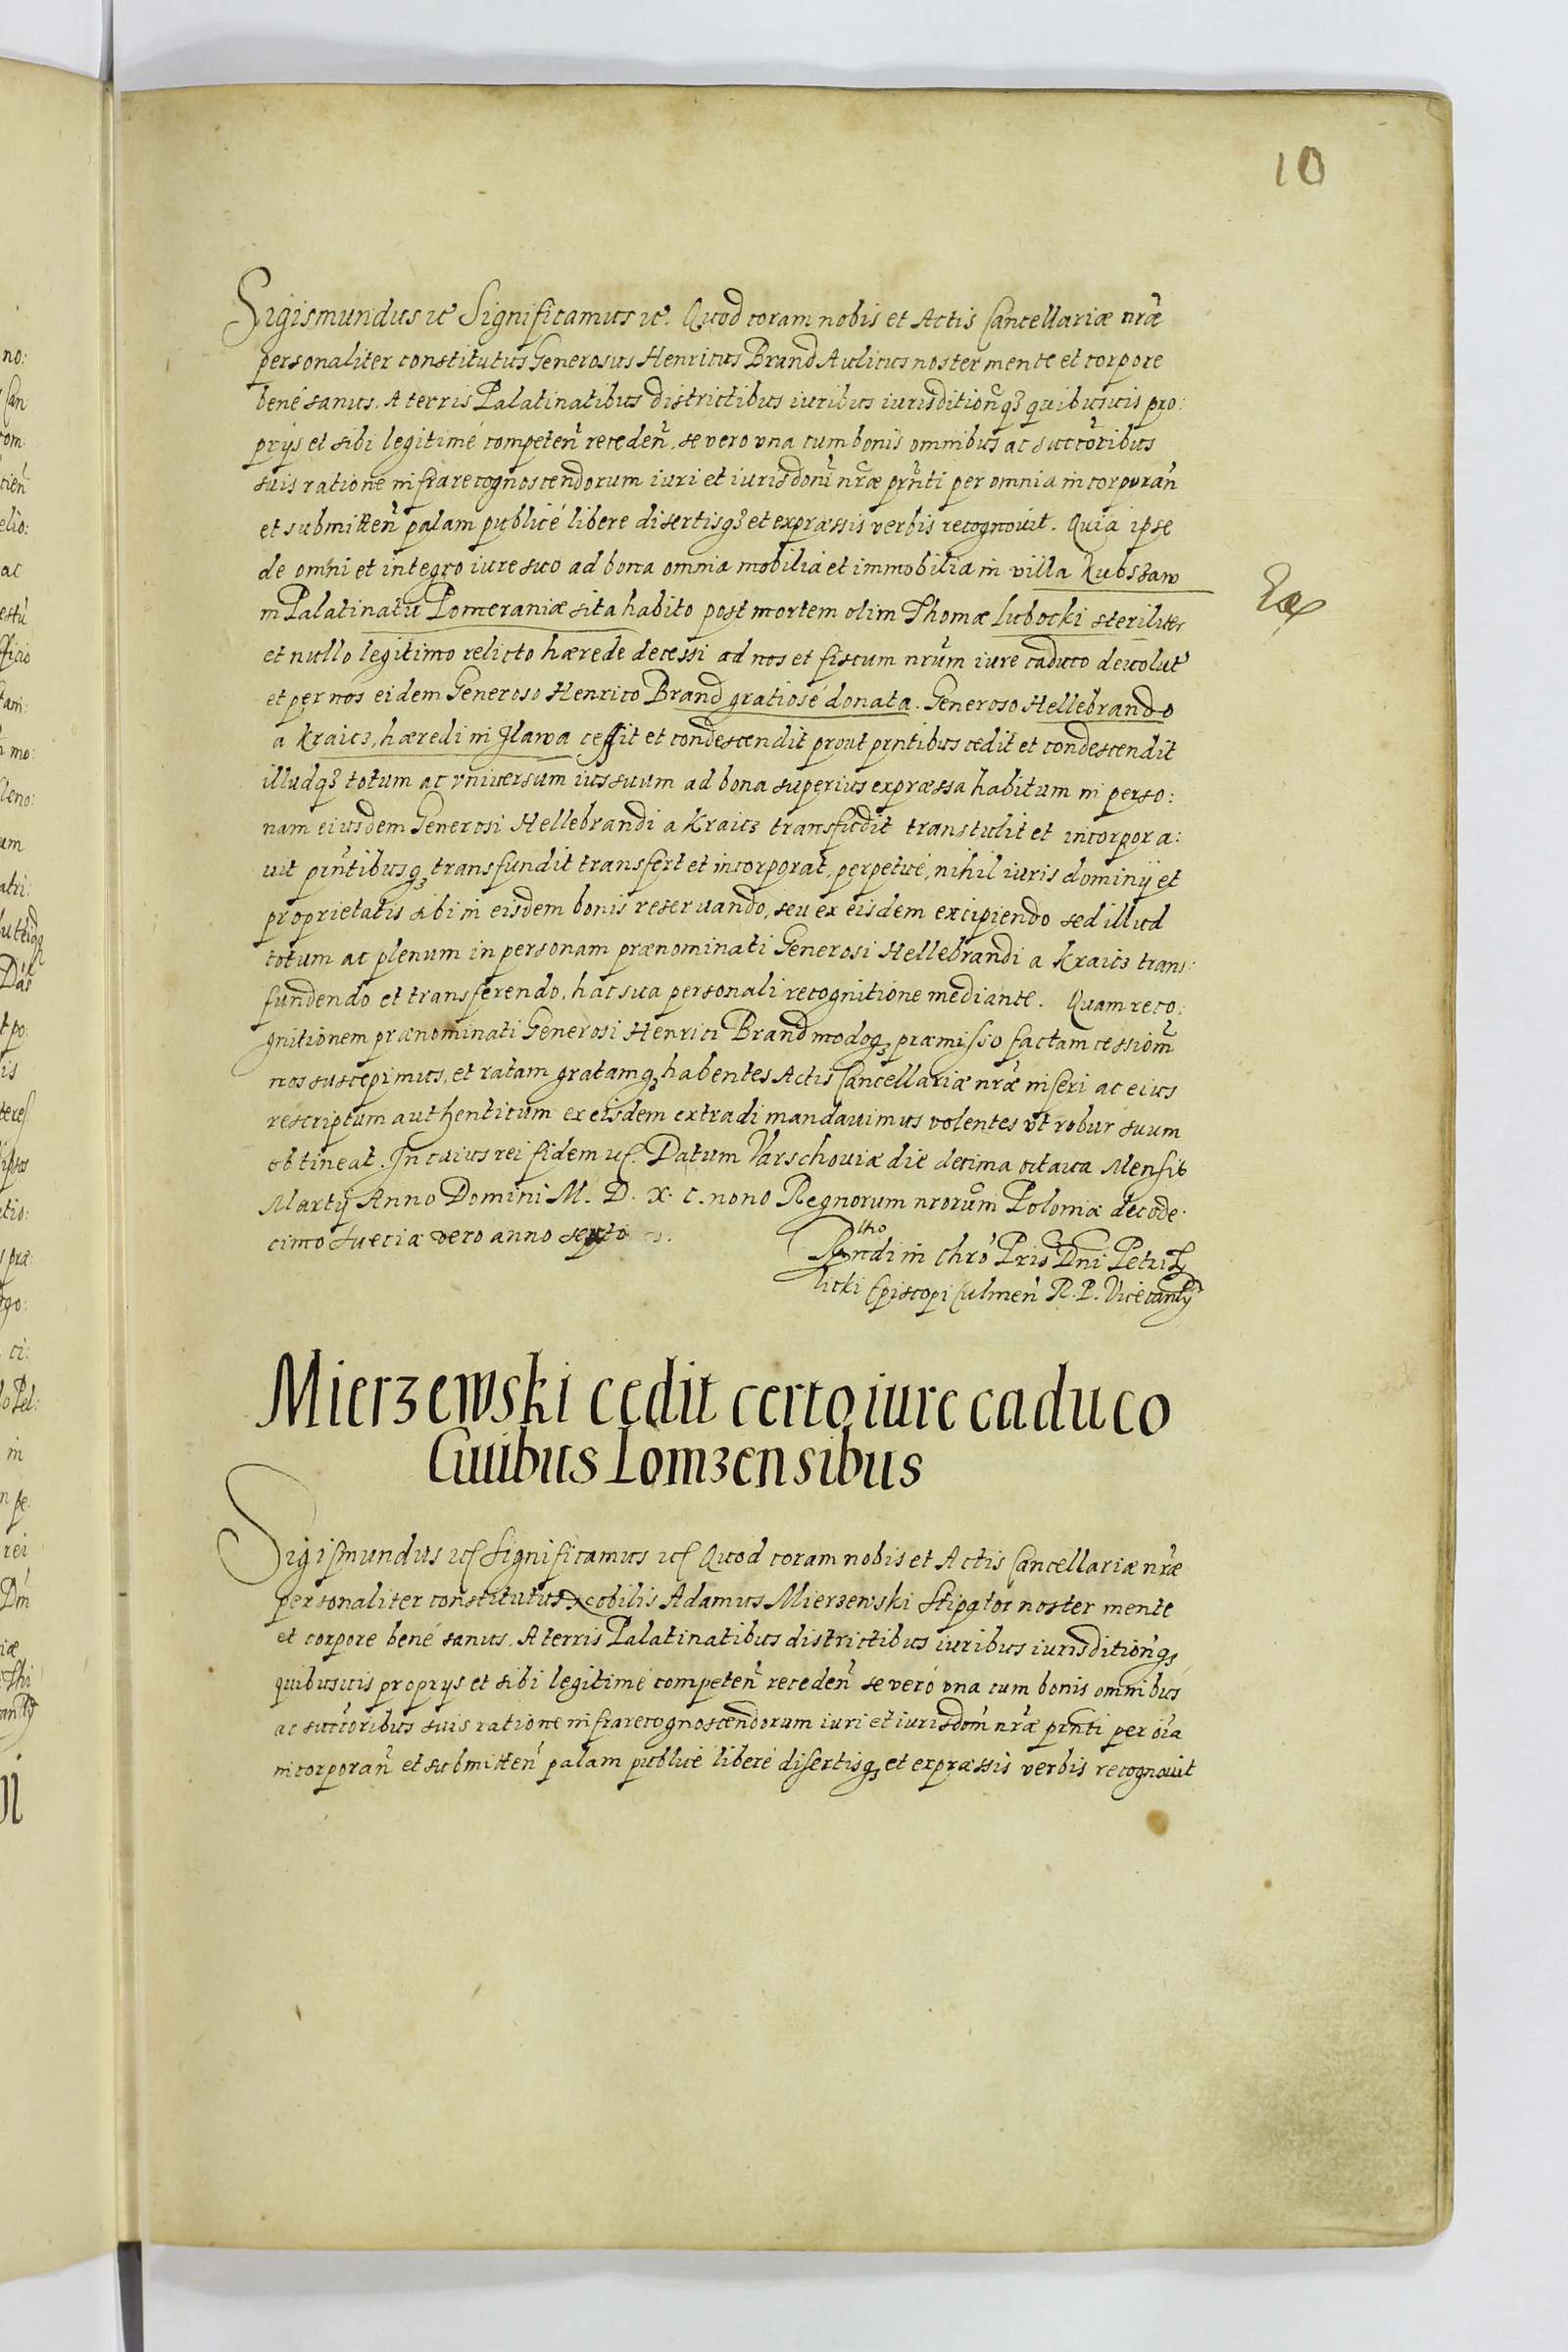 10
Sigismundus etc Significamus etc. Quod coram nobis et Actis Cancellariæ nr̃æ
personaliter constitutus Generosus Henricus Brand Aulicus noster mente et corpore
bené sanus. A terris Palatinatibus districtibus iuribus iurisdition̄q₃ quibusuis pro:
prijs et sibi legitimé competen̄ receden̄. se vero vna cum bonis omnibus ac succõribus
suis ratione infrarecognoscendorum iuri et iurisdoni nr̃æ prñti per omnia incorporan̄
et submitten̄ palam publicé libere disertisq₃ et expræssis verbis recognouit. Quia ipse
de omni et integro iure suo ad bona omnia mobilia et immobilia in villa Kubstaw
in Palatinatu Pomeraniæ sita habito post mortem olim Thomæ Lubocki steriliter
et nullo legitimo relicto hærede decessi ad nos et fiscum nrũm iure caduco deuolut̃
et per nos eidem Generoso Henrico Brand gratiosé donata. Generoso Hellebrando
a Kraics, hæredi in Jlawa cessit et condescendit prout prñtibus cedit et condescendit
illudq₃ totum ac vniuersum ius suum ad bona superius expræssa habitum in perso:
nam eiusdem Generosi Hellebrandi a Kraics transfudit transtulit et incorpora:
uit prñtibusq₃ transfundit transfert et incorporat, perpetué, nihil iuris dominij et
proprietatis sibi in eisdem bonis reseruando, seu ex eisdem excipiendo sed illud
totum ac plenum in personam prænominati Generosi Hellebrandi a Kraics trans:
fundendo et transferendo, hac sua personali recognitione mediante. Quam reco:
gnitionem prænominati Generosi Henrici Brand modoq₃ præmisso factam cessiom̃
nos suscepimus, et ratam gratamq₃ habentes Actis Cancellariæ nr̃æ inseri ac eius
rescriptum authenticum ex eisdem extradi mandauimus volentes vt robur suum
obtineat. In cuius rei fidem etc. Datum Varschouiæ die decima octaua Mensis
Martij Anno Domini M. D. X. C. nono Regnorum nrorũm Poloniæ deco de:
cimo Sueciæ vero anno sexto
Rndi in Chrõ Pris Dni Petri Ty
licki Episcopi Culmen̄ R. P. Vicecanc̃
Mierzewski cedit certo iure caduco
Ciuibus Lomzensibus
Sigismundus etc Significamus etc Quod coram nobis et Actis Cancellariæ nr̃æ
personaliter constitutus Nobilis Adamus Mierzewski Stipator noster mente
et corpore bené sanus. A terris Palatinatibus districtibus iuribus iurisdition̄q₃
quibusuis proprys et sibi legitimé competen̄ receden̄ se veró vna cum bonis omnibus
ac succõribus suis ratione infrarecognoscendorum iuri et iurisdom̃ nr̃æ prñti per oĩa
incorporan̄ et submitten̄ palam publicé liberé disertisq₃ et expræssis verbis recognouit